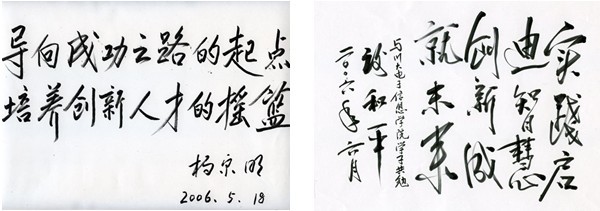 导向成功之路的起点
培养创新人才的摇篮
杨宗明
2006.5.18
实践启
迪智慧
创新成
就未来
与川大电子信息学院学子共勉
段和平
二〇〇六年六月